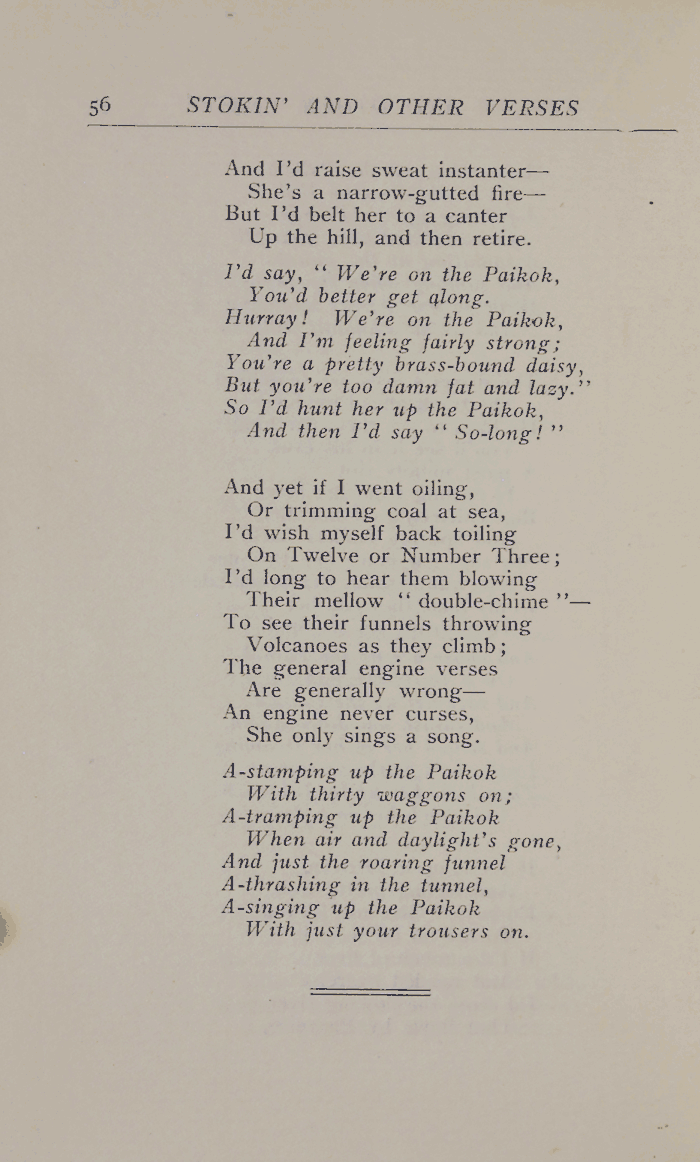 56 STOKIN' AND OTHER VERSES
And I'd raise sweat instanter—
She's a narrow-gutted fire—
But I'd belt her to a canter
Up the hill, and then retire.
I'd say, “ We're on the Paikok,
You'd better get along.
Hurray! We're on the Paikok,
And I'm feeling fairly strong;
You're a pretty brass-bound daisy,
But you're too damn fat and lazy.”
So I'd hunt her up the Paikok,
And then I'd say “ So-long! ”
And yet if I went oiling,
Or trimming coal at sea,
I'd wish myself back toiling
On Twelve or Number Three;
I'd long to hear them blowing
Their mellow “ double-chime ”—
To see their funnels throwing
Volcanoes as they climb;
The general engine verses
Are generally wrong—
An engine never curses,
She only sings a song.
A-stamping up the Paikok
With thirty waggons on;
A-tramping up the Paikok
When air and daylight's gone,
And just the roaring funnel
A-thrashing in the tunnel,
A-singing up the Paikok
With just your trousers on.